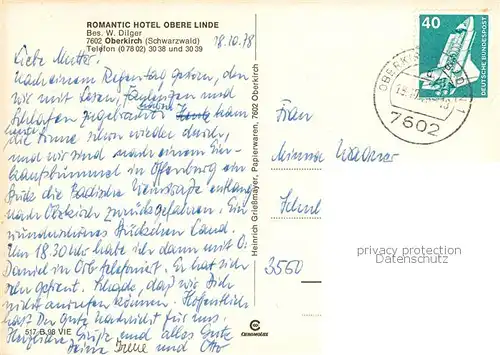 ROMANTIC HOTEL OBERE LINDE
Bes. W. Dilger
7602 Oberkirch (Schwarzwald)
Telefon (0 78 02) 30 38 und 30 39
18.10.78
Liebe Mutter.
Nach einem Regentag gestern, den
wir mit Lesen, Faulenzen und
Schlafen zugebracht haben kam
heute die Sonne schon wieder durch
und wir sind nach einem Ein-
kaufsbummel in Offenburg ein
Stück die Badische Weinstraße entlang
nach Oberkirch zurückgefahren. Ein
wunderschönes Stückchen Land.
Um 18.30 Uhr habe ich dann mit O.
Daniel in Orb telefoniert. Er hat sich
sehr gefreut. Schade, daß wir Dich
nicht anrufen können. Hoffentlich
hast Du gute Nachricht für uns.
Herzliche Grüße und alles Gute
Deine Irene und Otto
517 B 98 VIE
Heinrich Grießmayer, Papierwaren, 7602 Oberkirch
CEKOMBINA
40
DEUTSCHE BUNDESPOST
OBERKIRCH
7602
Frau
Minna Wagner
3560
privacy protection
Datenschutz